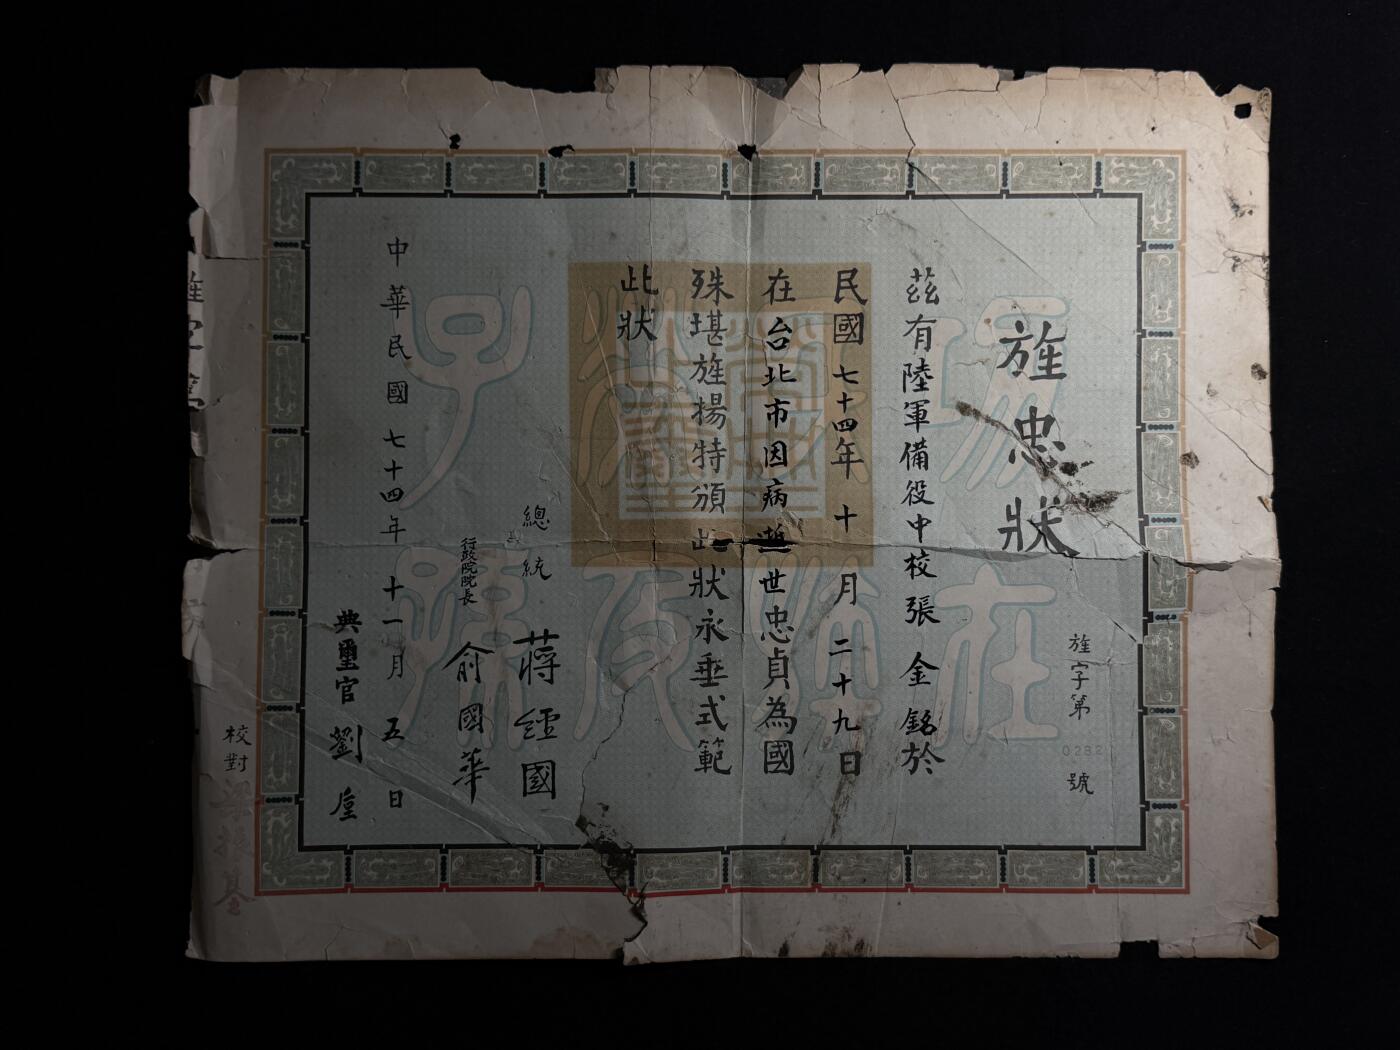 旌忠狀
旌字第0282號
茲有陸軍備役中校張金銘於
民國七十四年十月二十九日
在台北市因病逝世忠貞為國
殊堪旌揚特頒此狀永垂式範
此狀
總統 蔣經國
行政院院長 俞國華
中華民國七十四年十一月五日
典璽官 劉垕
校對 梁振基
旌字第